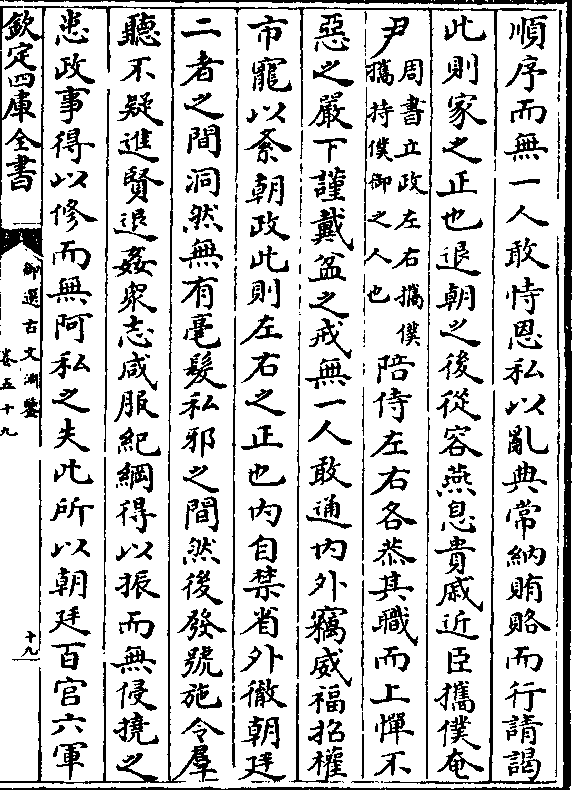 順序而無一人敢恃恩私以亂典常納賄賂而行請謁
此則家之正也退朝之後從容燕息貴戚近臣攜僕奄
尹周書立政左右攜僕攜持僕御之人也陪侍左右各恭其職而上憚不
惡之嚴下謹戴盆之戒無一人敢通內外竊威福招權
市寵以紊朝政此則左右之正也內自禁省外徹朝廷
二者之間洞然無有毫髮私邪之間然後發號施令羣
聽不疑進賢退姦衆志咸服紀綱得以振而無侵撓之
患政事得以修而無阿私之失此所以朝廷百官六軍
欽定四庫全書
御選古文淵鑒
卷五十九
十九